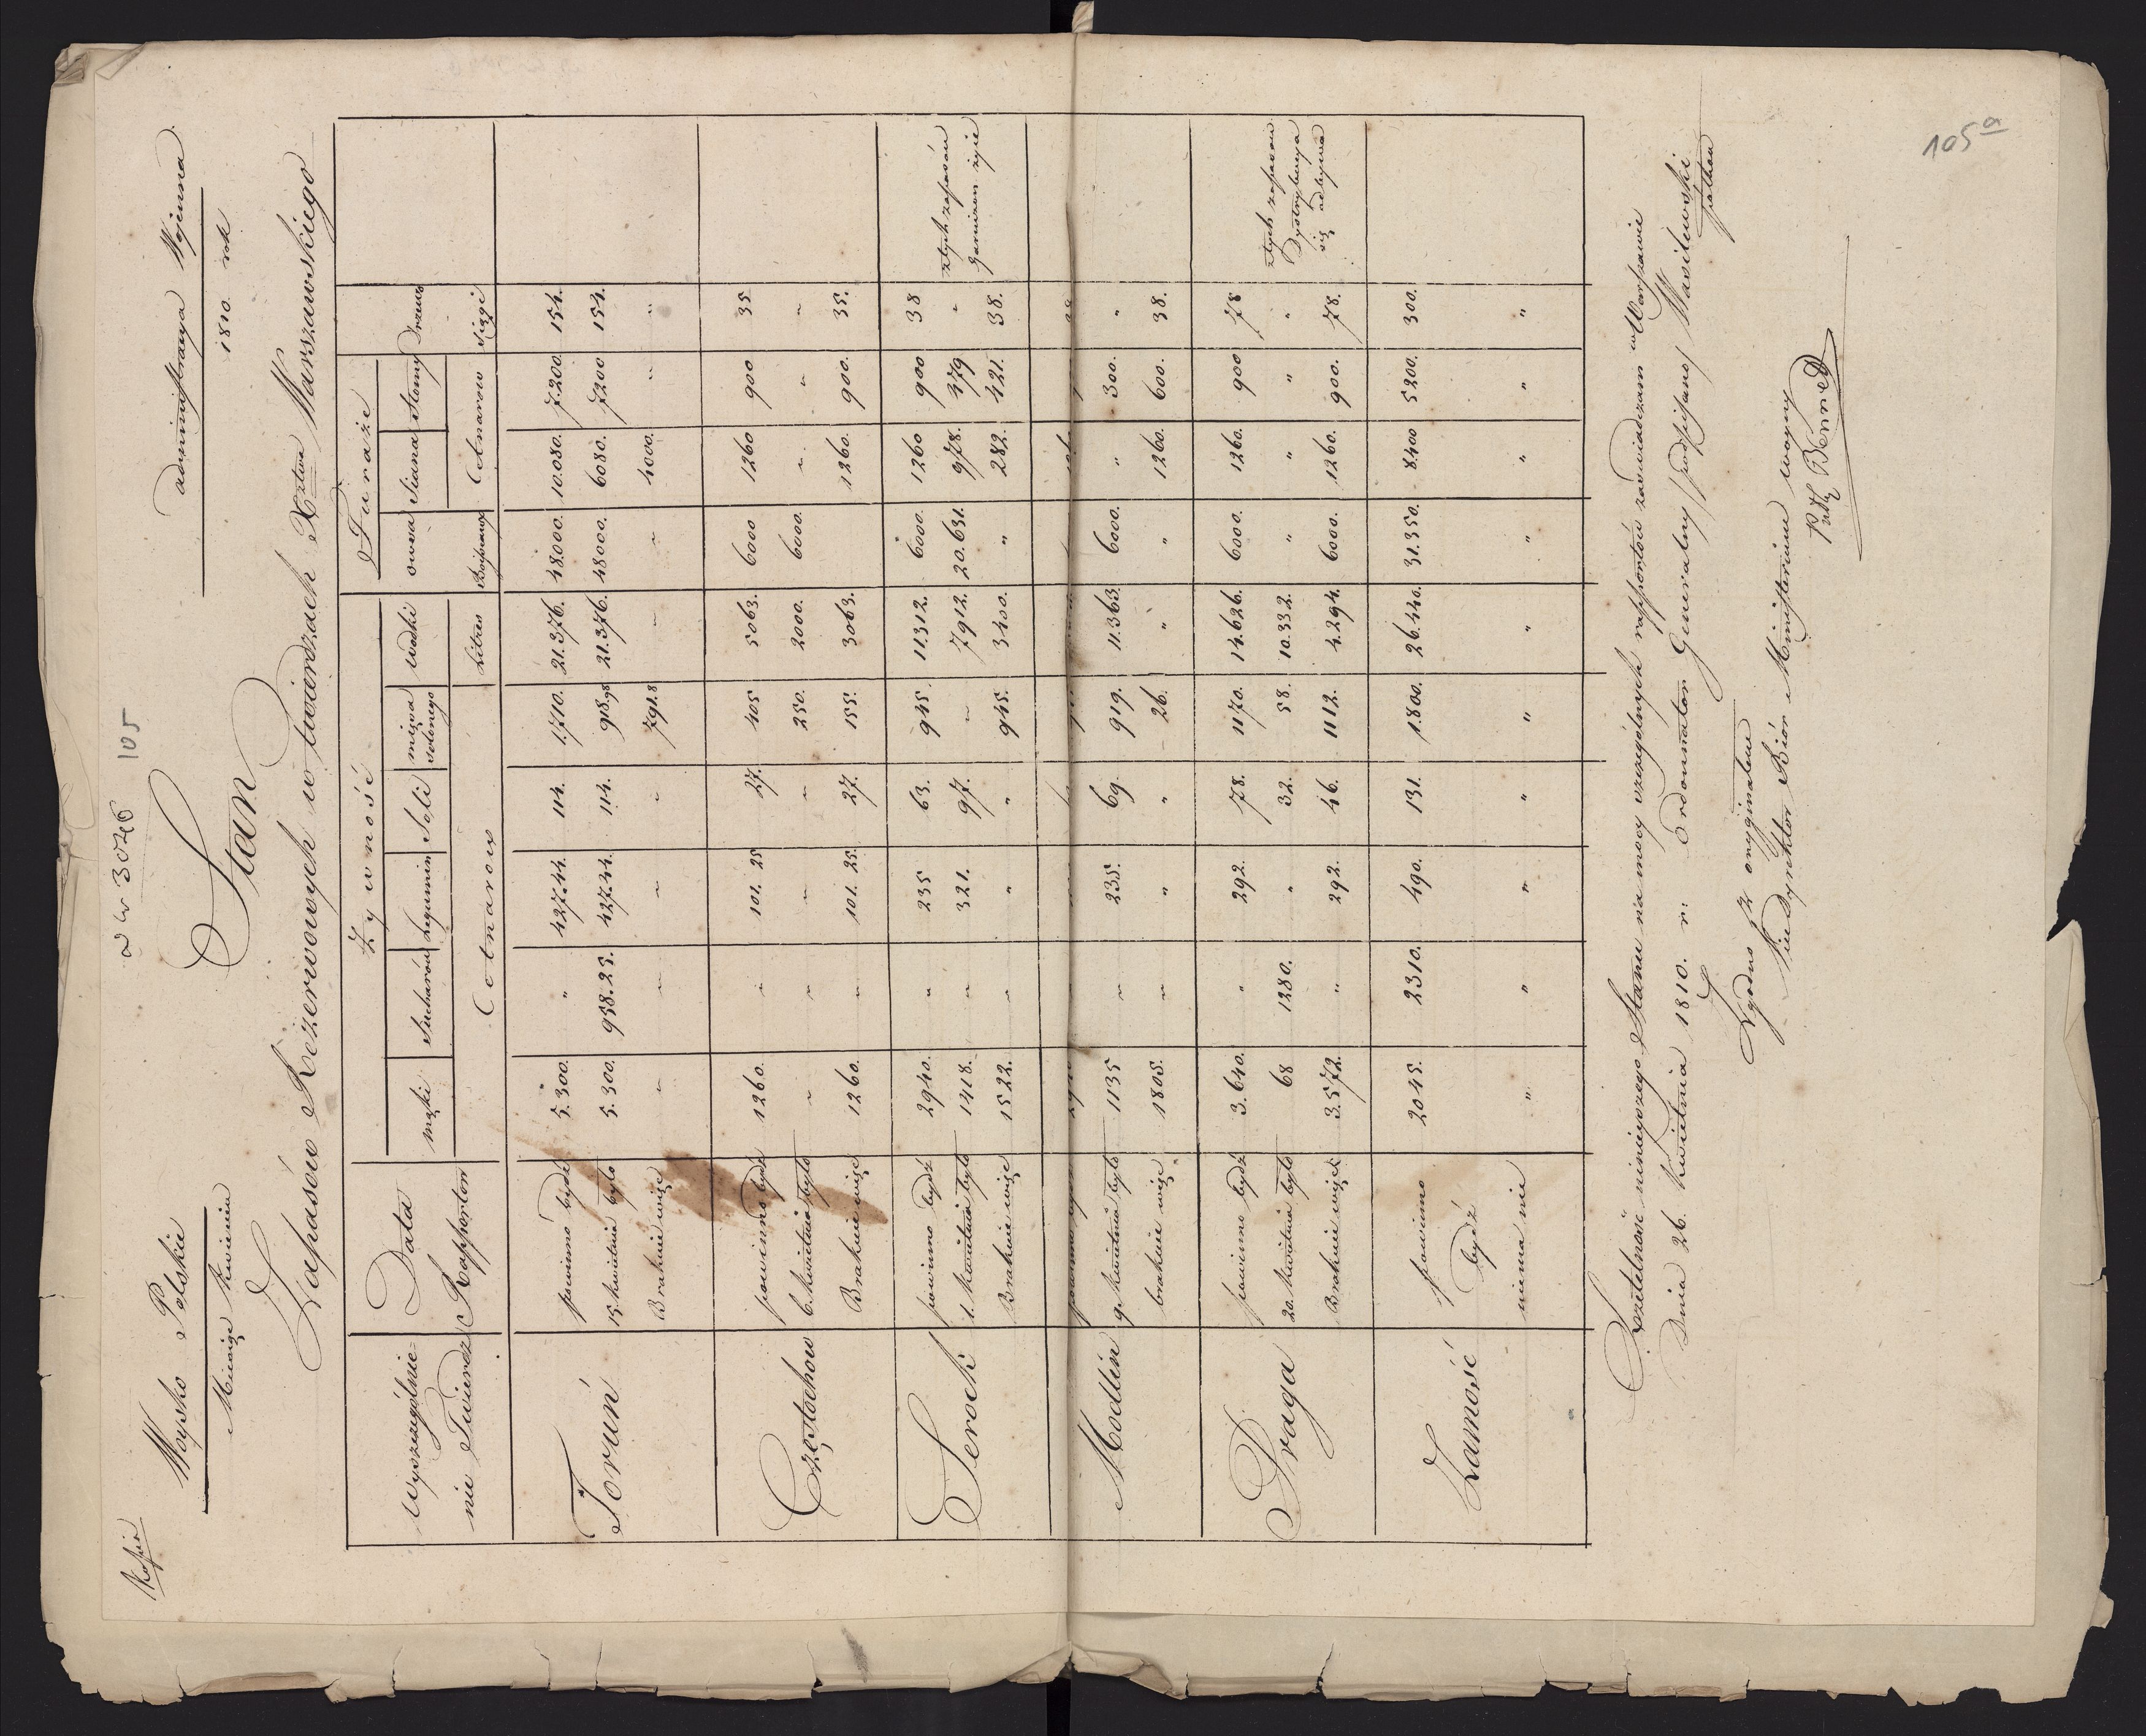 Kopia
ad Nr 3024 105
Woysko Polskie
Miesiąc Kwiecien
administracya Wojenna
1810 rok
Stan
Zapasów Rezerwowych w twierdzach Xztwa Warszawskiego
Wyszczególnie-
nie Twierdz
Data
Rapportow
Żywność
Furaże
Drzewa
mąki Sucharów Legumin Soli mięsa solonego wodki owsa Siana Słomy
Cetnarow Litres Boisseaux Cetnarow Sążni
Toruń
powinno bydź 5.300. " 427.44. 114. 1.710. 21.376. 48.000. 10.080. 7.200. 154.
15. kwietnia było 5.300. 958.25. 427.44. 114. 918.98 21.376. 48000. 6080. 7200 154.
Brakuie więc " " " " 791.8 " " 4000. " "
Częstochow
powinno bydź 1260. " 101. 25 27. 405 5063. 6000 1260 900 35
6. kwietnia było " " " " 250. 2000. 6000. " " "
Brakuie więc 1260. " 101. 25. 27. 155. 3063. 1260. 900. 35.
Serock
powinno bydź 2940. " 235 63. 945. 11.312. 6000. 1260 900 38
1. kwietnia było 1418. " 321. 97. " 7912. 20.631. 978. 479 "
Brakuie więc 1522. " " " 945. 3400. " 282. 421. 38.
z tych zapasów
garnizon żyie
Modlin
powinno bydź
9. kwietnia było 1135 " 235. 69. 919. 11.363. 6000. " 300. "
brakuie więc 1805. " " " 26. " " 1260. 600. 38.
Praga
powinno bydź 3.640. " 292. 78. 1170. 14.626. 6000. 1260. 900 78
20. kwietnia było 68 1280. " 32. 58. 10.332. " " " "
Brakuie więc 3.572. " 292. 46. 1112. 4.294. 6000. 1260. 900. 78.
z tych zapasów
Dystrybucya
się odbywa
Zamość
powinno
bydź 2045. 2310. 490. 131. 1.800. 26.440. 31.350. 8.400 5200. 300.
niema nic " " " " " " " " " "
Rzetelność ninieyszego Stanu na mocy szczególnych rapportów zaświadczam w Warszawie
Dnia 26. Kwietnia 1810. r. Ordonnator Generalny /podpisano/ Wasilewski
Zgodno z oryginałem
Vice Dyrektor Biór Ministerium woyny
105a